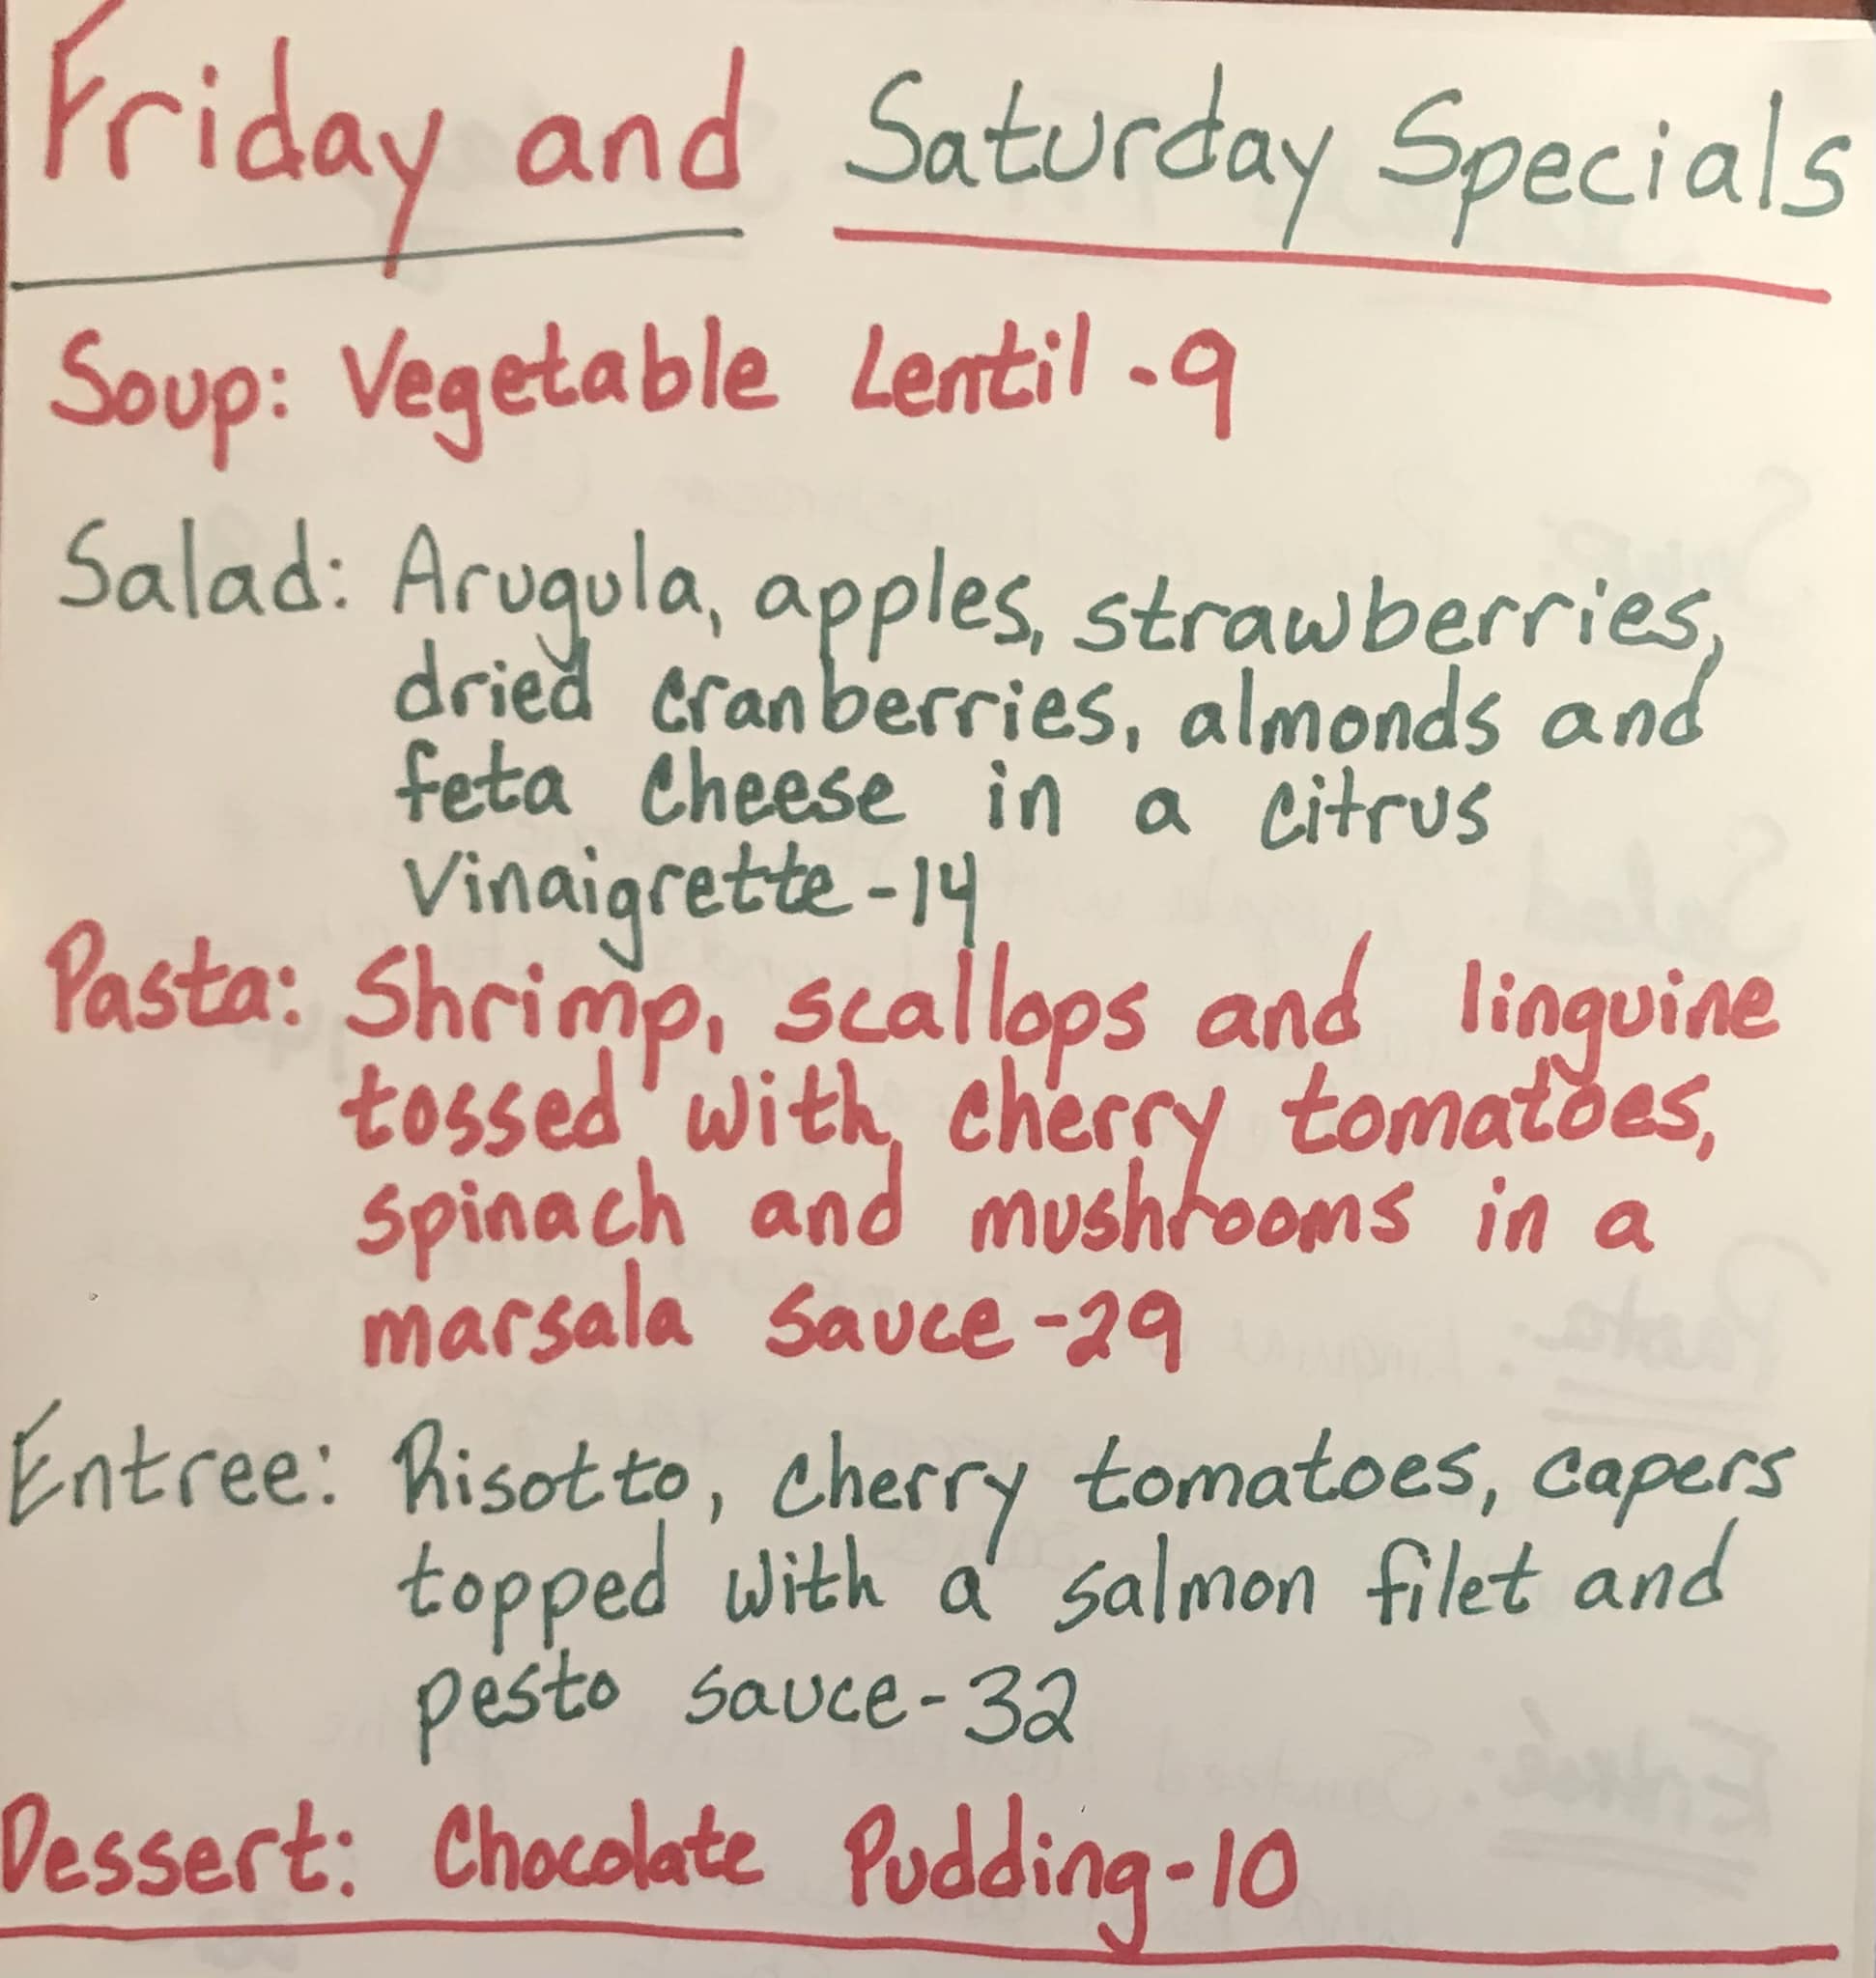 Friday and Saturday Specials
Soup: Vegetable Lentil -9
Salad: Arugula, apples, strawberries,
dried cranberries, almonds and
feta cheese in a citrus
Vinaigrette -14
Pasta: Shrimp, scallops and linguine
tossed with cherry tomatoes,
spinach and mushrooms in a
marsala sauce -29
Entree: Risotto, cherry tomatoes, capers
topped with a salmon filet and
pesto sauce - 32
Dessert: Chocolate Pudding -10